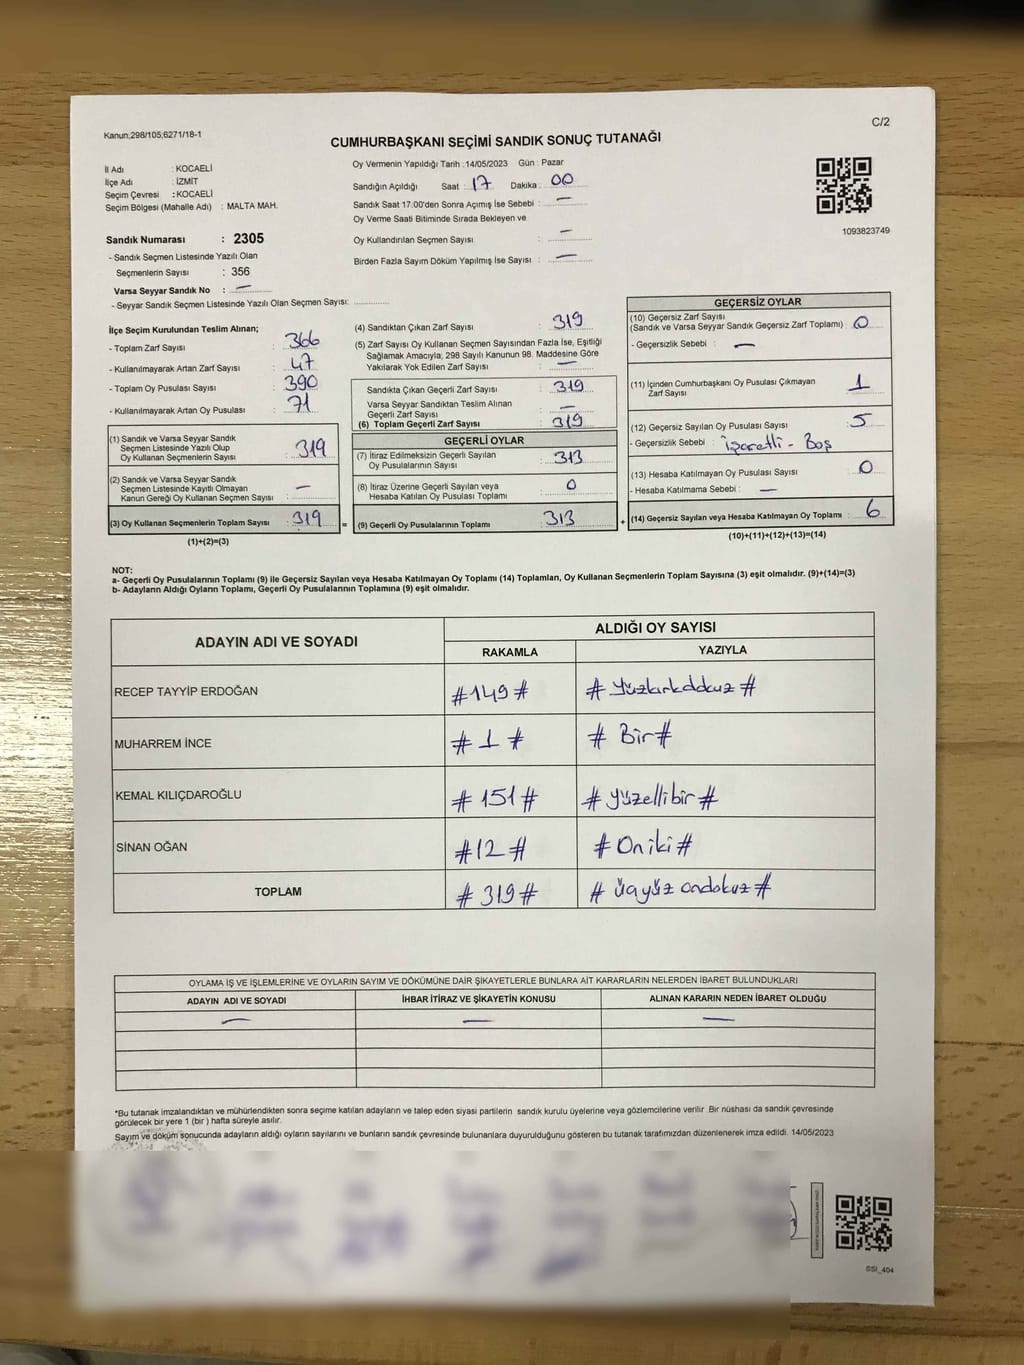 Kanun;298/105,6271/18-1
C/2
CUMHURBAŞKANI SEÇİMİ SANDIK SONUÇ TUTANAĞI
İl Adı : KOCAELİ
İlçe Adı : İZMİT
Seçim Çevresi : KOCAELİ
Seçim Bölgesi (Mahalle Adı) : MALTA MAH.
Oy Vermenin Yapıldığı Tarih :14/05/2023 Gün : Pazar
Sandığın Açıldığı Saat : 17 Dakika : 00
Sandık Saat 17.00'den Sonra Açımış İse Sebebi : —
Oy Verme Saati Bitiminde Sırada Bekleyen ve
Oy Kullandırılan Seçmen Sayısı : —
Birden Fazla Sayım Döküm Yapılmış İse Sayısı : —
1093823749
Sandık Numarası : 2305
- Sandık Seçmen Listesinde Yazılı Olan
Seçmenlerin Sayısı : 356
Varsa Seyyar Sandık No : —
- Seyyar Sandık Seçmen Listesinde Yazılı Olan Seçmen Sayısı:
İlçe Seçim Kurulundan Teslim Alınan;
- Toplam Zarf Sayısı : 366
- Kullanılmayarak Artan Zarf Sayısı : 47
- Toplam Oy Pusulası Sayısı : 390
- Kullanılmayarak Artan Oy Pusulası : 71
(1) Sandık ve Varsa Seyyar Sandık
Seçmen Listesinde Yazılı Olup
Oy Kullanan Seçmenlerin Sayısı : 319
(2) Sandık ve Varsa Seyyar Sandık
Seçmen Listesinde Kayıtlı Olmayan
Kanun Gereği Oy Kullanan Seçmen Sayısı : —
(3) Oy Kullanan Seçmenlerin Toplam Sayısı : 319
(1)+(2)=(3)
(4) Sandıktan Çıkan Zarf Sayısı : 319
(5) Zarf Sayısı Oy Kullanan Seçmen Sayısından Fazla İse, Eşitliği
Sağlamak Amacıyla; 298 Sayılı Kanunun 98. Maddesine Göre
Yakılarak Yok Edilen Zarf Sayısı : —
Sandıkta Çıkan Geçerli Zarf Sayısı : 319
Varsa Seyyar Sandıktan Teslim Alınan
Geçerli Zarf Sayısı : —
(6) Toplam Geçerli Zarf Sayısı : 319
GEÇERLİ OYLAR
(7) İtiraz Edilmeksizin Geçerli Sayılan
Oy Pusulalarının Sayısı : 313
(8) İtiraz Üzerine Geçerli Sayılan veya
Hesaba Katılan Oy Pusulası Toplamı : 0
= (9) Geçerli Oy Pusulalarının Toplamı : 313
GEÇERSİZ OYLAR
(10) Geçersiz Zarf Sayısı
(Sandık ve Varsa Seyyar Sandık Geçersiz Zarf Toplamı) : 0
- Geçersizlik Sebebi : —
(11) İçinden Cumhurbaşkanı Oy Pusulası Çıkmayan
Zarf Sayısı : 1
(12) Geçersiz Sayılan Oy Pusulası Sayısı : 5
- Geçersizlik Sebebi : işaretli - Boş
(13) Hesaba Katılmayan Oy Pusulası Sayısı : 0
- Hesaba Katılmama Sebebi : —
+ (14) Geçersiz Sayılan veya Hesaba Katılmayan Oy Toplamı : 6
(10)+(11)+(12)+(13)=(14)
NOT:
a- Geçerli Oy Pusulalarının Toplamı (9) ile Geçersiz Sayılan veya Hesaba Katılmayan Oy Toplamı (14) Toplamları, Oy Kullanan Seçmenlerin Toplam Sayısına (3) eşit olmalıdır. (9)+(14)=(3)
b- Adayların Aldığı Oyların Toplamı, Geçerli Oy Pusulalarının Toplamına (9) eşit olmalıdır.
ADAYIN ADI VE SOYADI ALDIĞI OY SAYISI
RAKAMLA YAZIYLA
RECEP TAYYİP ERDOĞAN #149# #Yüzkırkdokuz#
MUHARREM İNCE #1# #Bir#
KEMAL KILIÇDAROĞLU #151# #yüzellibir#
SİNAN OĞAN #12# #Oniki#
TOPLAM #319# #üçyüz ondokuz#
OYLAMA İŞ VE İŞLEMLERİNE VE OYLARIN SAYIM VE DÖKÜMÜNE DAİR ŞİKAYETLERLE BUNLARA AİT KARARLARIN NELERDEN İBARET BULUNDUKLARI
ADAYIN ADI VE SOYADI İHBAR İTİRAZ VE ŞİKAYETİN KONUSU ALINAN KARARIN NEDEN İBARET OLDUĞU
— — —
*Bu tutanak imzalandıktan ve mühürlendikten sonra seçime katılan adayların ve talep eden siyasi partilerin sandık kurulu üyelerine veya gözlemcilerine verilir .Bir nüshası da sandık çevresinde
görülecek bir yere 1 (bir ) hafta süreyle asılır.
Sayım ve döküm sonucunda adayların aldığı oyların sayılarını ve bunların sandık çevresinde bulunanlara duyurulduğunu gösteren bu tutanak tarafımızdan düzenlenerek imza edildi. 14/05/2023
SSI_404